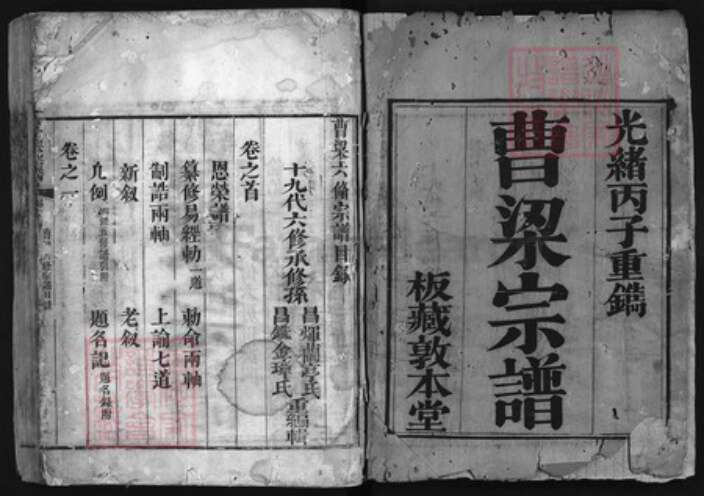 光緒丙子重鐫
曹梁宗譜
板藏敦本堂
曹梁六修宗譜目錄
十九代六修承修孫
昌輝蘭亭氏
昌錢金璋氏
重編輯
卷之首
恩榮譜
纂修易經勅一道
勅命兩軸
制誥兩軸
上諭七道
新敘
老敘
凡例
題名記 題名錄附
卷之一